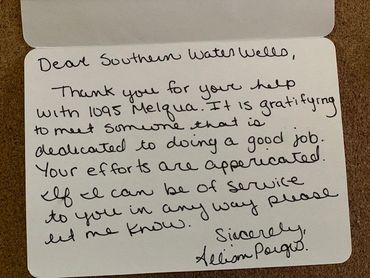 Dear Southern Water Wells,
Thank you for your help
with 1095 Melqua. It is gratifying
to meet someone that is
dedicated to doing a good job.
Your efforts are appericated.
If I can be of service
to you in any way please
let me know.
Sincerely,
Allison